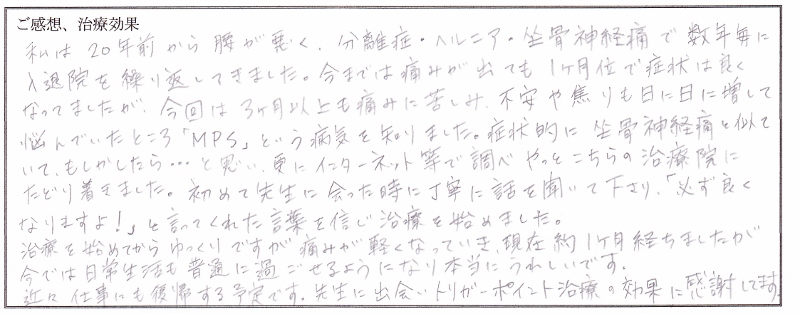 ご感想、治療効果
私は20年前から腰が悪く、分離症・ヘルニア・坐骨神経痛で数年毎に
入退院を繰り返してきました。今までは痛みが出ても1ヶ月位で症状は良く
なってましたが、今回は3ヶ月以上も痛みに苦しみ、不安や焦りも日に日に増して
悩んでいたところ「MPS」という病気を知りました。症状的に坐骨神経痛と似て
いて、もしかしたら…と思い、更にインターネット等で調べやっとこちらの治療院に
たどり着きました。初めて先生に会った時に丁寧に話を聞いて下さり、「必ず良く
なりますよ!」と言ってくれた言葉を信じ治療を始めました。
治療を始めてからゆっくりですが痛みが軽くなっていき、現在約1ヶ月経ちましたが
今では日常生活も普通に過ごせるようになり本当にうれしいです。
近々仕事にも復帰する予定です。先生に出会いトリガーポイント治療の効果に感謝してます。